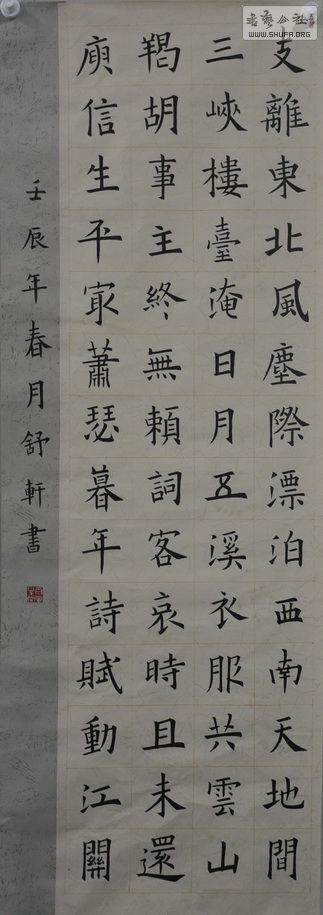 支離東北風塵際漂泊西南天地間
三峽樓臺淹日月五溪衣服共雲山
羯胡事主終無賴詞客哀時且未還
庾信生平㝡蕭瑟暮年詩賦動江關
壬辰年春月舒軒書
書藝公社
WWW.SHUFA.ORG